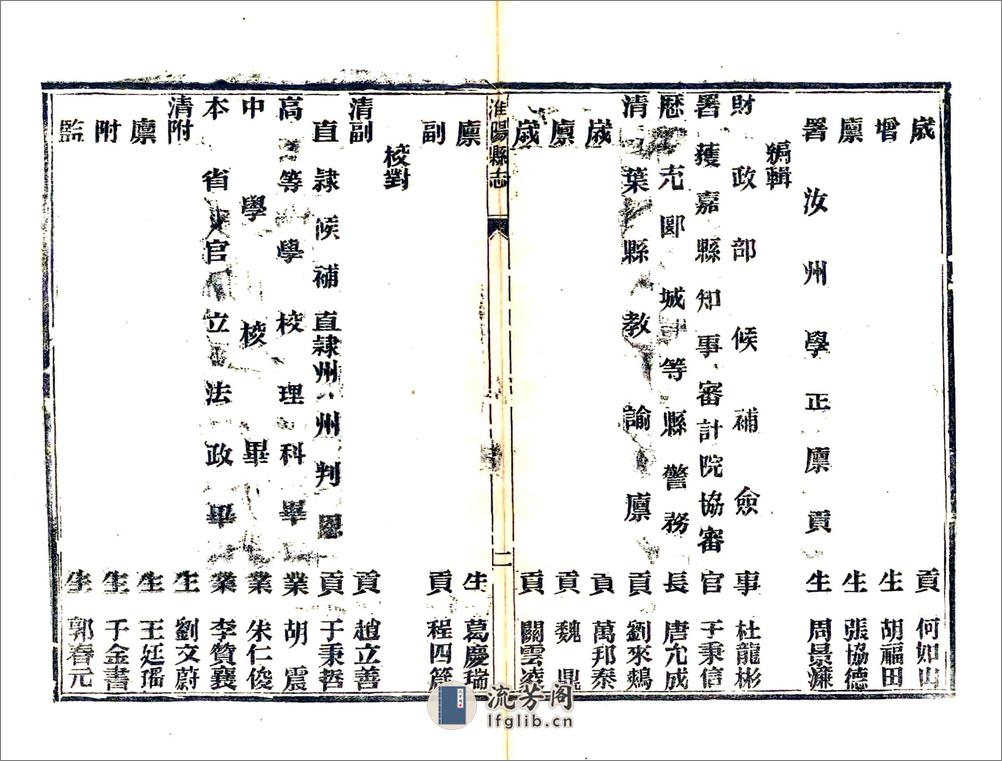 歲貢何如山
增生胡福田
廪生張協德
署汝州學正廪貢生周景濂
編輯
財政部候補僉事杜龍彬
署獲嘉縣知事審計院協審官于秉信
歷充郾城等縣警務長唐允成
清葉縣教諭廪貢劉來鷞
歲貢萬邦泰
廪貢魏鼎
歲貢關雲凌
淮陽縣志
二
廪生葛慶瑞
副貢程四箴
校對
清副貢趙立善
直隸候補直隸州州判恩貢于秉哲
高等學校理科畢業胡震
中學校畢業朱仁俊
本省官立法政畢業李贊襄
清附生劉文蔚
廪生王廷瑶
附生于金書
監生郭春元
流芳阁
lfglib.cn